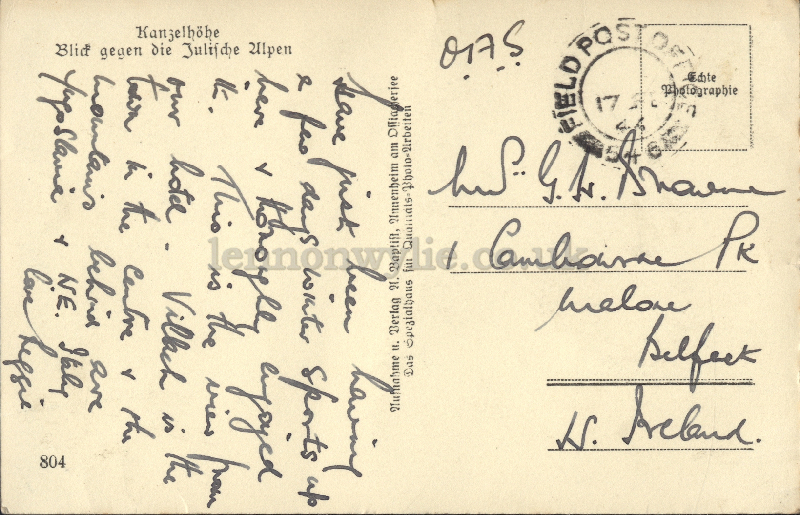 Kanzelhöhe
Blick gegen die Julische Alpen
Have just been having
a few days winter sports up
here & thoroughly enjoyed
it. This is the view from
our hotel - Villach is the
town in the centre & the
mountains behind are
Yugoslavia & N.E. Italy
love Reggie
804
Aufnahme u. Verlag A. Baptist, Annenheim am Ossiachersee
Das Spezialhaus für Qualitäts-Photo-Arbeiten
OAS
FIELD POST OFFICE
17
546
Echte
Photographie
Mrs. G. H. Browne
1 Camhourne Pk
Malone
Belfast
N. Ireland.
lennonwylie.co.uk